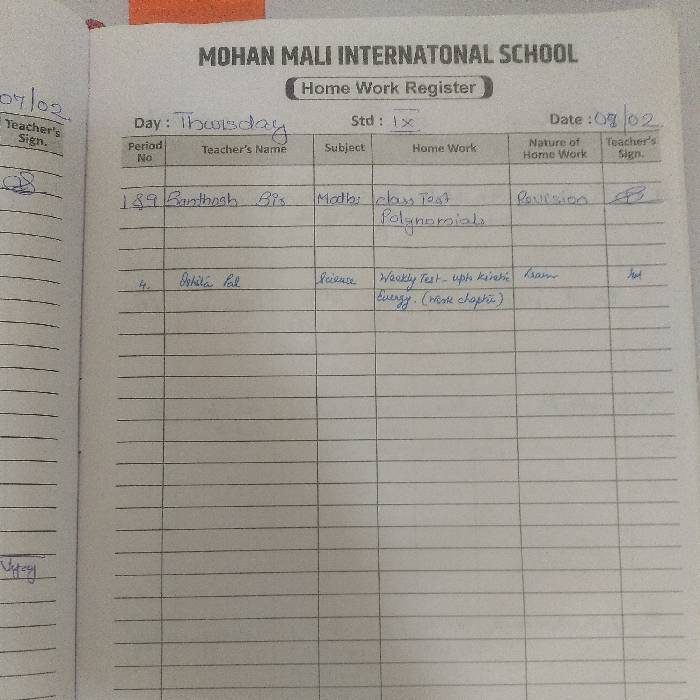 07/02
Teacher's
Sign.
MOHAN MALI INTERNATONAL SCHOOL
Home Work Register
Day : Thursday Std : IX Date : 08/02
Period No Teacher's Name Subject Home Work Nature of Home Work Teacher's Sign.
1&9 Santhosh Maths class Test Revision
Polynomials
4. Pal Science Weekly Test - upto Kinetic Learn
Energy. (Work chapter)